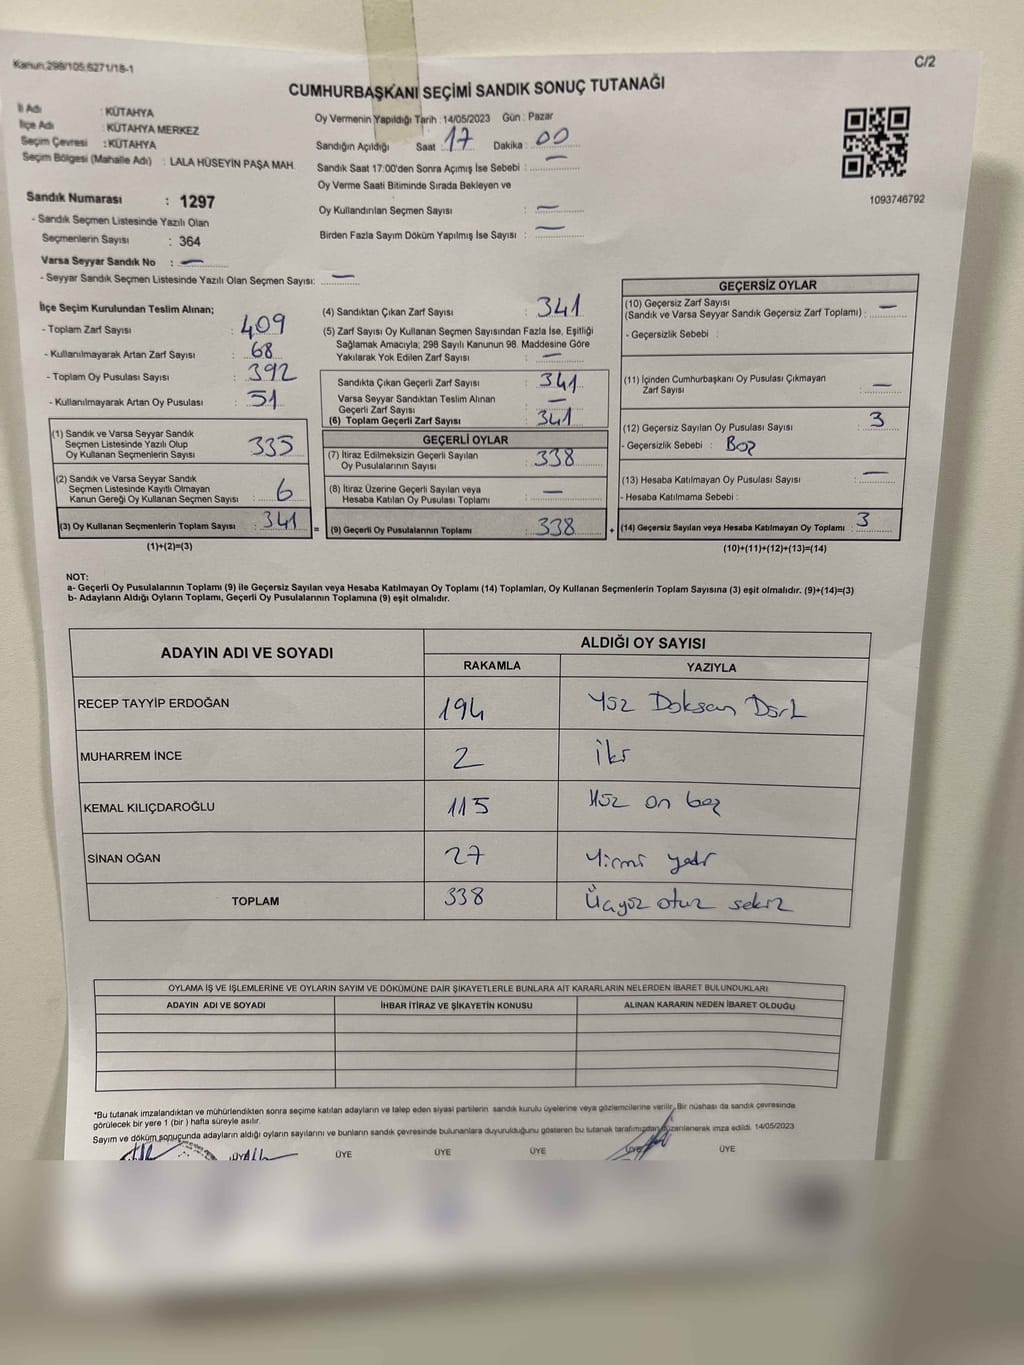 Kanun:298/105;6271/18-1
C/2
CUMHURBAŞKANI SEÇİMİ SANDIK SONUÇ TUTANAĞI
İl Adı : KÜTAHYA
İlçe Adı : KÜTAHYA MERKEZ
Seçim Çevresi : KÜTAHYA
Seçim Bölgesi (Mahalle Adı) : LALA HÜSEYİN PAŞA MAH.
Sandık Numarası : 1297
- Sandık Seçmen Listesinde Yazılı Olan
Seçmenlerin Sayısı : 364
Varsa Seyyar Sandık No : —
- Seyyar Sandık Seçmen Listesinde Yazılı Olan Seçmen Sayısı: —
Oy Vermenin Yapıldığı Tarih : 14/05/2023 Gün : Pazar
Sandığın Açıldığı Saat : 17 Dakika : 00
Sandık Saat 17:00'den Sonra Açımış İse Sebebi : —
Oy Verme Saati Bitiminde Sırada Bekleyen ve
Oy Kullandırılan Seçmen Sayısı : —
Birden Fazla Sayım Döküm Yapılmış İse Sayısı : —
1093746792
İlçe Seçim Kurulundan Teslim Alınan;
- Toplam Zarf Sayısı : 409
- Kullanılmayarak Artan Zarf Sayısı : 68
- Toplam Oy Pusulası Sayısı : 392
- Kullanılmayarak Artan Oy Pusulası : 51
(1) Sandık ve Varsa Seyyar Sandık
Seçmen Listesinde Yazılı Olup
Oy Kullanan Seçmenlerin Sayısı 335
(2) Sandık ve Varsa Seyyar Sandık
Seçmen Listesinde Kayıtlı Olmayan
Kanun Gereği Oy Kullanan Seçmen Sayısı : 6
(3) Oy Kullanan Seçmenlerin Toplam Sayısı : 341
(1)+(2)=(3)
(4) Sandıktan Çıkan Zarf Sayısı : 341
(5) Zarf Sayısı Oy Kullanan Seçmen Sayısından Fazla İse, Eşitliği
Sağlamak Amacıyla; 298 Sayılı Kanunun 98. Maddesine Göre
Yakılarak Yok Edilen Zarf Sayısı : —
Sandıkta Çıkan Geçerli Zarf Sayısı : 341
Varsa Seyyar Sandıktan Teslim Alınan
Geçerli Zarf Sayısı : —
(6) Toplam Geçerli Zarf Sayısı : 341
GEÇERLİ OYLAR
(7) İtiraz Edilmeksizin Geçerli Sayılan
Oy Pusulalarının Sayısı : 338
(8) İtiraz Üzerine Geçerli Sayılan veya
Hesaba Katılan Oy Pusulası Toplamı : —
= (9) Geçerli Oy Pusulalarının Toplamı : 338 +
GEÇERSİZ OYLAR
(10) Geçersiz Zarf Sayısı
(Sandık ve Varsa Seyyar Sandık Geçersiz Zarf Toplamı) : —
- Geçersizlik Sebebi :
(11) İçinden Cumhurbaşkanı Oy Pusulası Çıkmayan
Zarf Sayısı : —
(12) Geçersiz Sayılan Oy Pusulası Sayısı : 3
- Geçersizlik Sebebi : Boş
(13) Hesaba Katılmayan Oy Pusulası Sayısı : —
- Hesaba Katılmama Sebebi :
(14) Geçersiz Sayılan veya Hesaba Katılmayan Oy Toplamı : 3
(10)+(11)+(12)+(13)=(14)
NOT:
a- Geçerli Oy Pusulalarının Toplamı (9) ile Geçersiz Sayılan veya Hesaba Katılmayan Oy Toplamı (14) Toplamları, Oy Kullanan Seçmenlerin Toplam Sayısına (3) eşit olmalıdır. (9)+(14)=(3)
b- Adayların Aldığı Oyların Toplamı, Geçerli Oy Pusulalarının Toplamına (9) eşit olmalıdır.
ADAYIN ADI VE SOYADI
ALDIĞI OY SAYISI
RAKAMLA YAZIYLA
RECEP TAYYİP ERDOĞAN 194 Yüz Doksan Dört
MUHARREM İNCE 2 iki
KEMAL KILIÇDAROĞLU 115 Yüz on beş
SİNAN OĞAN 27 Yirmi yedi
TOPLAM 338 Üçyüz otuz sekiz
OYLAMA İŞ VE İŞLEMLERİNE VE OYLARIN SAYIM VE DÖKÜMÜNE DAİR ŞİKAYETLERLE BUNLARA AİT KARARLARIN NELERDEN İBARET BULUNDUKLARI
ADAYIN ADI VE SOYADI İHBAR İTİRAZ VE ŞİKAYETİN KONUSU ALINAN KARARIN NEDEN İBARET OLDUĞU
*Bu tutanak imzalandıktan ve mühürlendikten sonra seçime katılan adayların ve talep eden siyasi partilerin sandık kurulu üyelerine veya gözlemcilerine verilir. Bir nüshası da sandık çevresinde
görülecek bir yere 1 (bir) hafta süreyle asılır.
Sayım ve döküm sonucunda adayların aldığı oyların sayılarını ve bunların sandık çevresinde bulunanlara duyurulduğunu gösteren bu tutanak tarafımızdan düzenlenerek imza edildi. 14/05/2023
ÜYE ÜYE ÜYE ÜYE ÜYE